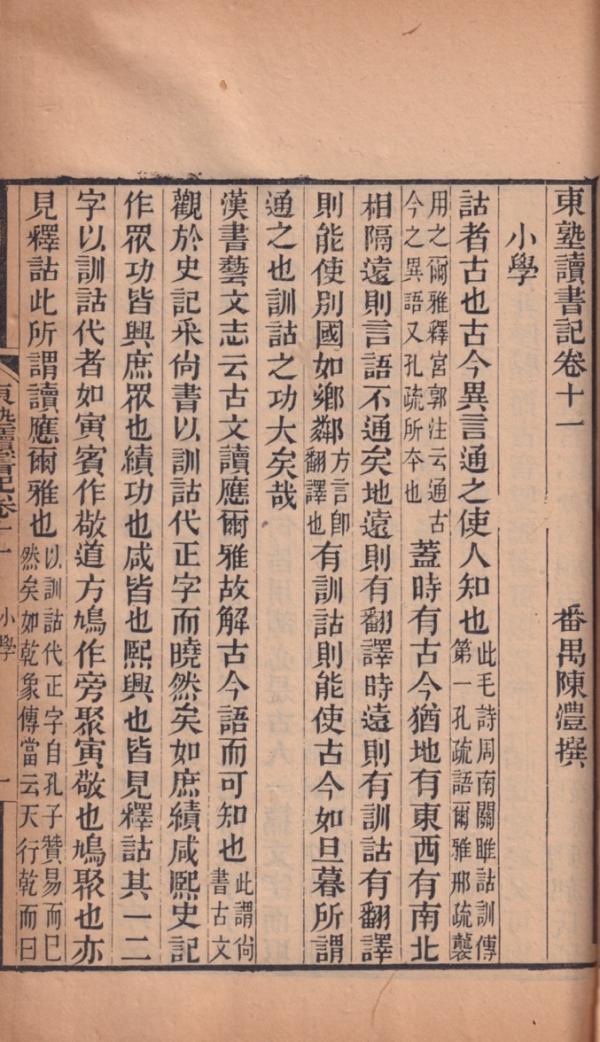 東塾讀書記卷十一 番禺陳澧撰
小學
詁者古也古今異言通之使人知也此毛詩周南關雎詁訓傳第一孔疏語爾雅邢疏襲
用之爾雅釋宮郭注云通古今之異語又孔疏所夲也葢時有古今猶地有東西有南北
相隔遠則言語不通矣地遠則有翻譯時遠則有訓詁有翻譯
則能使別國如鄉鄰方言卽翻譯也有訓詁則能使古今如旦暮所謂
通之也訓詁之功大矣哉
漢書藝文志云古文讀應爾雅故解古今語而可知也此謂尙書古文
觀於史記釆尙書以訓詁代正字而曉然矣如庶績咸熙史記
作眾功皆興庶眾也績功也咸皆也熙興也皆見釋詁其一二
字以訓詁代者如寅賓作敬道方鳩作旁聚寅敬也鳩聚也亦
見釋詁此所謂讀應爾雅也以訓詁代正字自孔子贊易而已然矣如乾象傳當云天行乾而曰
東塾讀書記卷十一 小學 一